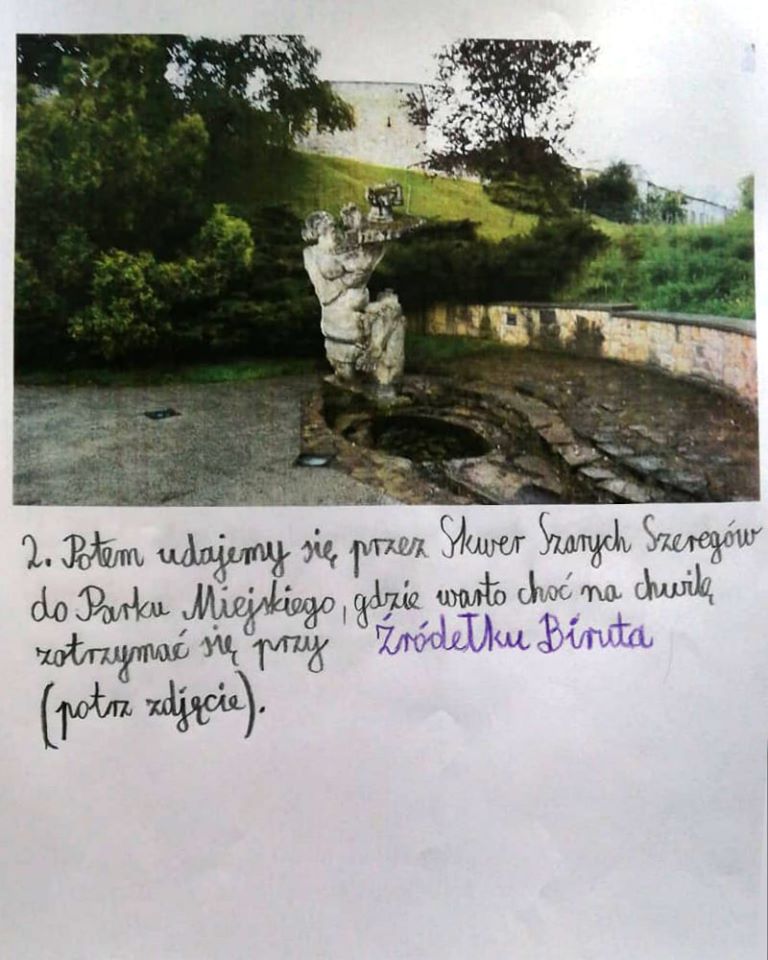 2. Potem udajemy się przez Skwer Szarych Szeregów
do Parku Miejskiego, gdzie warto choć na chwilę
zatrzymać się przy Źródełku Biruta
(patrz zdjęcie).